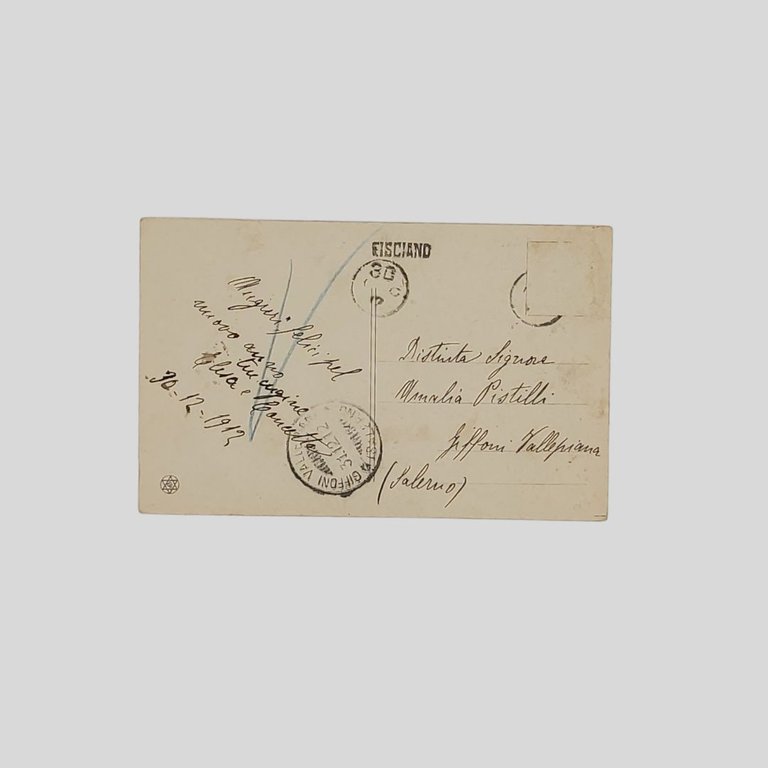 FISCIANO
30
Auguri felici pel
nuovo anno
tue cugine
Elisa e Concetta
30-12-1912
Distinta Signora
Amalia Pistilli
Giffoni Vallepiana
(Salerno)
GIFFONI VALLE
31.12.12